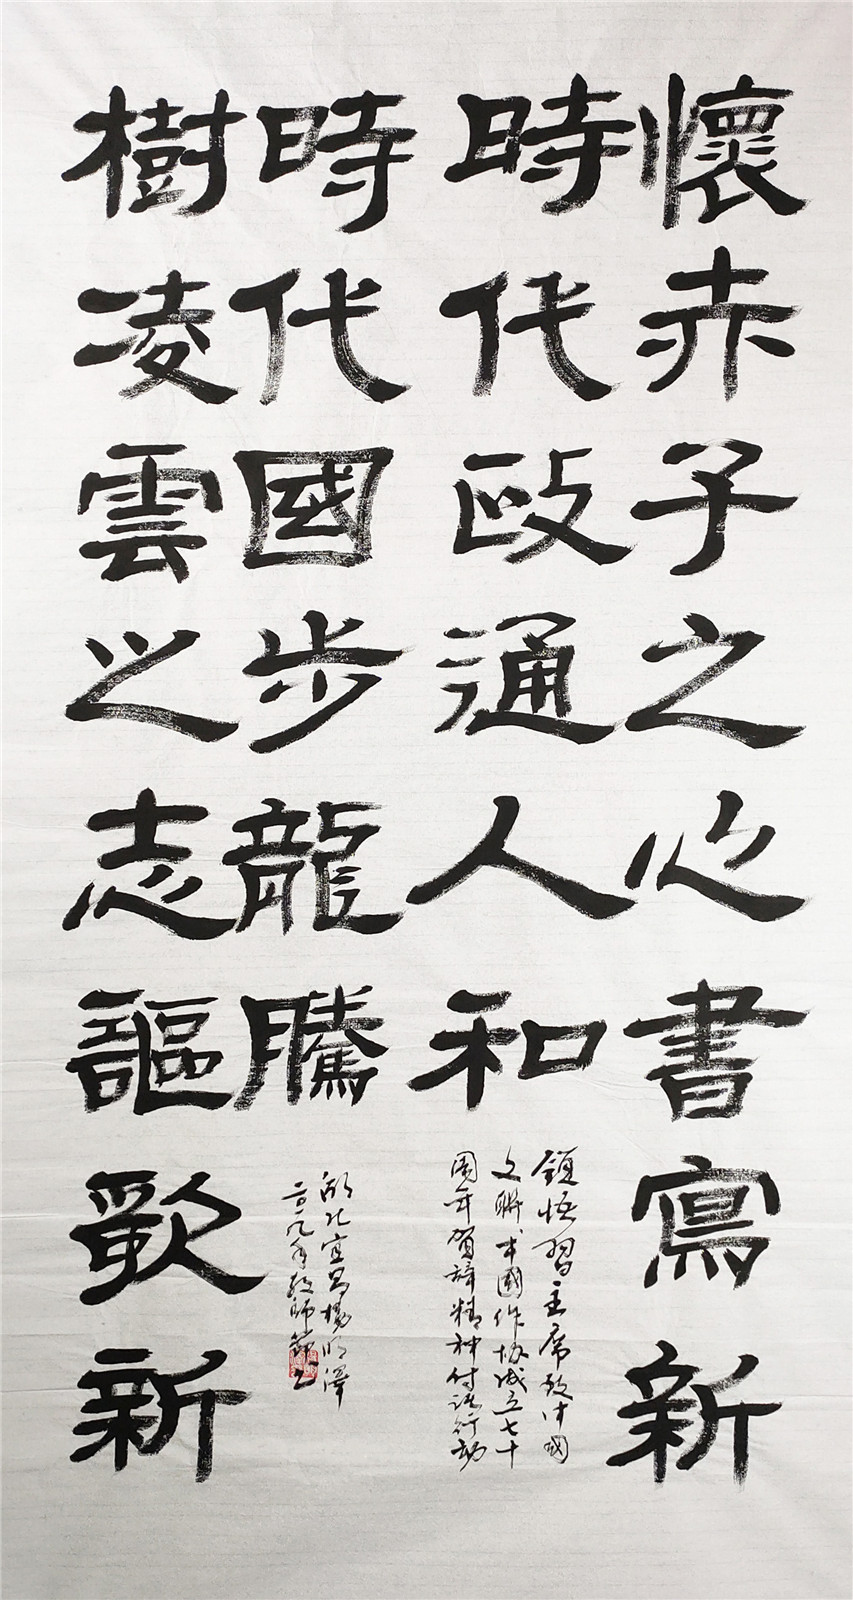 懷赤子之心書寫新
時代政通人和
樹凌雲之志謳歌新
時代國步龍騰
領悟習主席致中國
文聯中國作協成立七十
周年賀辭精神付諸行動
湖北宜昌楊明澤
九年教師節书